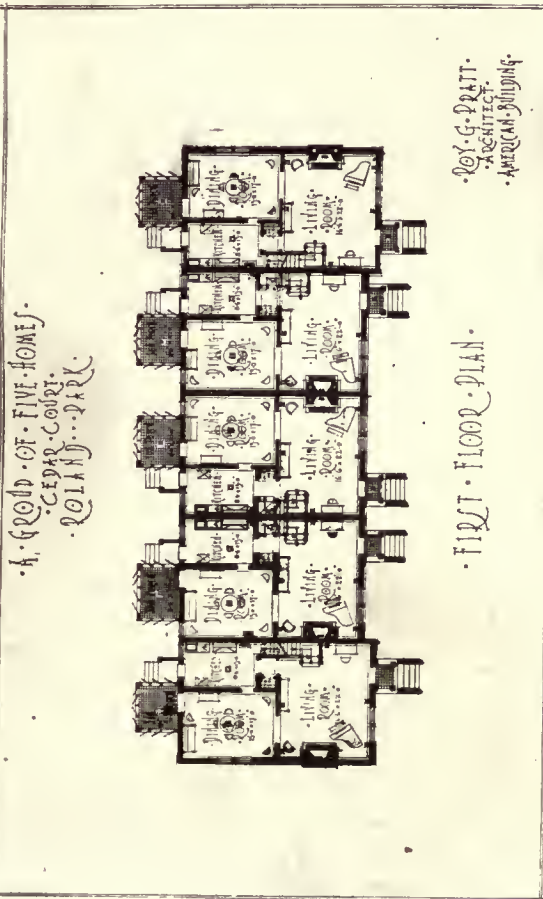 ·A·GROUP·OF·FIVE·HOMES·
·CEDAR·COURT·
·ROLAND···PARK·
·DINING·
ROOM·
·KITCHEN·
·DINING·
ROOM·
·KITCHEN·
·KITCHEN·
·DINING·
ROOM·
·DINING·
ROOM·
·KITCHEN·
·KITCHEN·
·DINING·
ROOM·
·LIVING·
·ROOM·
·LIVING·
·ROOM·
·LIVING·
·ROOM·
·LIVING·
·ROOM·
·LIVING·
·ROOM·
·FIRST·FLOOR·PLAN·
·ROY·G·PRATT·
·ARCHITECT·
·AMERICAN·BUILDING·